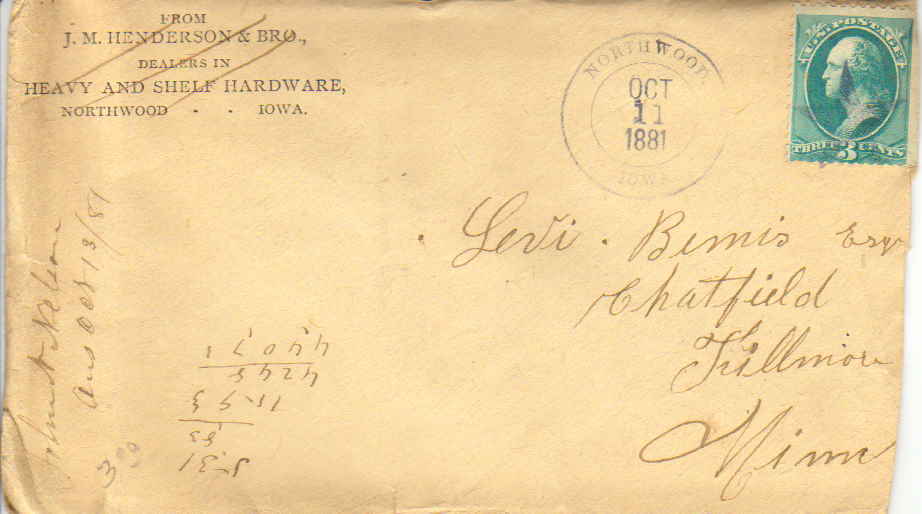 FROM
J. M. HENDERSON & BRO.,
DEALERS IN
HEAVY AND SHELF HARDWARE,
NORTHWOOD - - IOWA.
NORTHWOOD,
OCT
11
1881
IOWA
U.S. POSTAGE
THREE 3 CENTS
Levi . Bemis Esqr
Chatfield
Fillmore
Minn
John Nelson
Ans Oct 13/81